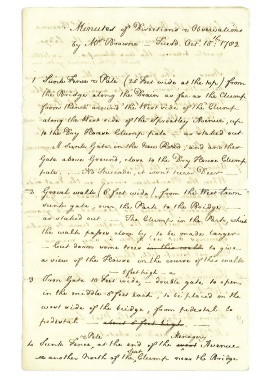 Minutes of Directions & Observations
by Mr. Browne — Tuesd. Oct. 18. 1782
1 Sunk Fence & Pale (25 Feet wide at the top) from
the Bridge along the Drain as far as the Clump
from thence around the West side of the Clump
along the West side of the Avenue, up
to the Dog House Clump pale — as staked out
A sunk Gate in the Road, and another
Gate above Ground, close to the Dog House Clump
pale.
2. Gravel walk (6 feet wide), from the West Lawn
sunk gate, over the Park to the Bridge
as staked out — The Clumps in the Park, which
the walk passes close by, to be made larger
— Cut down some trees in this walk to give
a view of the House in the course of this walk
5 feet high
3 Iron Gate 10 Feet wide, — double gate to open
in the middle 5 feet each, to be placed in the
west side of the bridge, from pedestal to
pedestal — about 5 feet high
Pale Menagery
4 Sunk Fence, at the end of the Avenue
& another North of the Clump near the Bridge